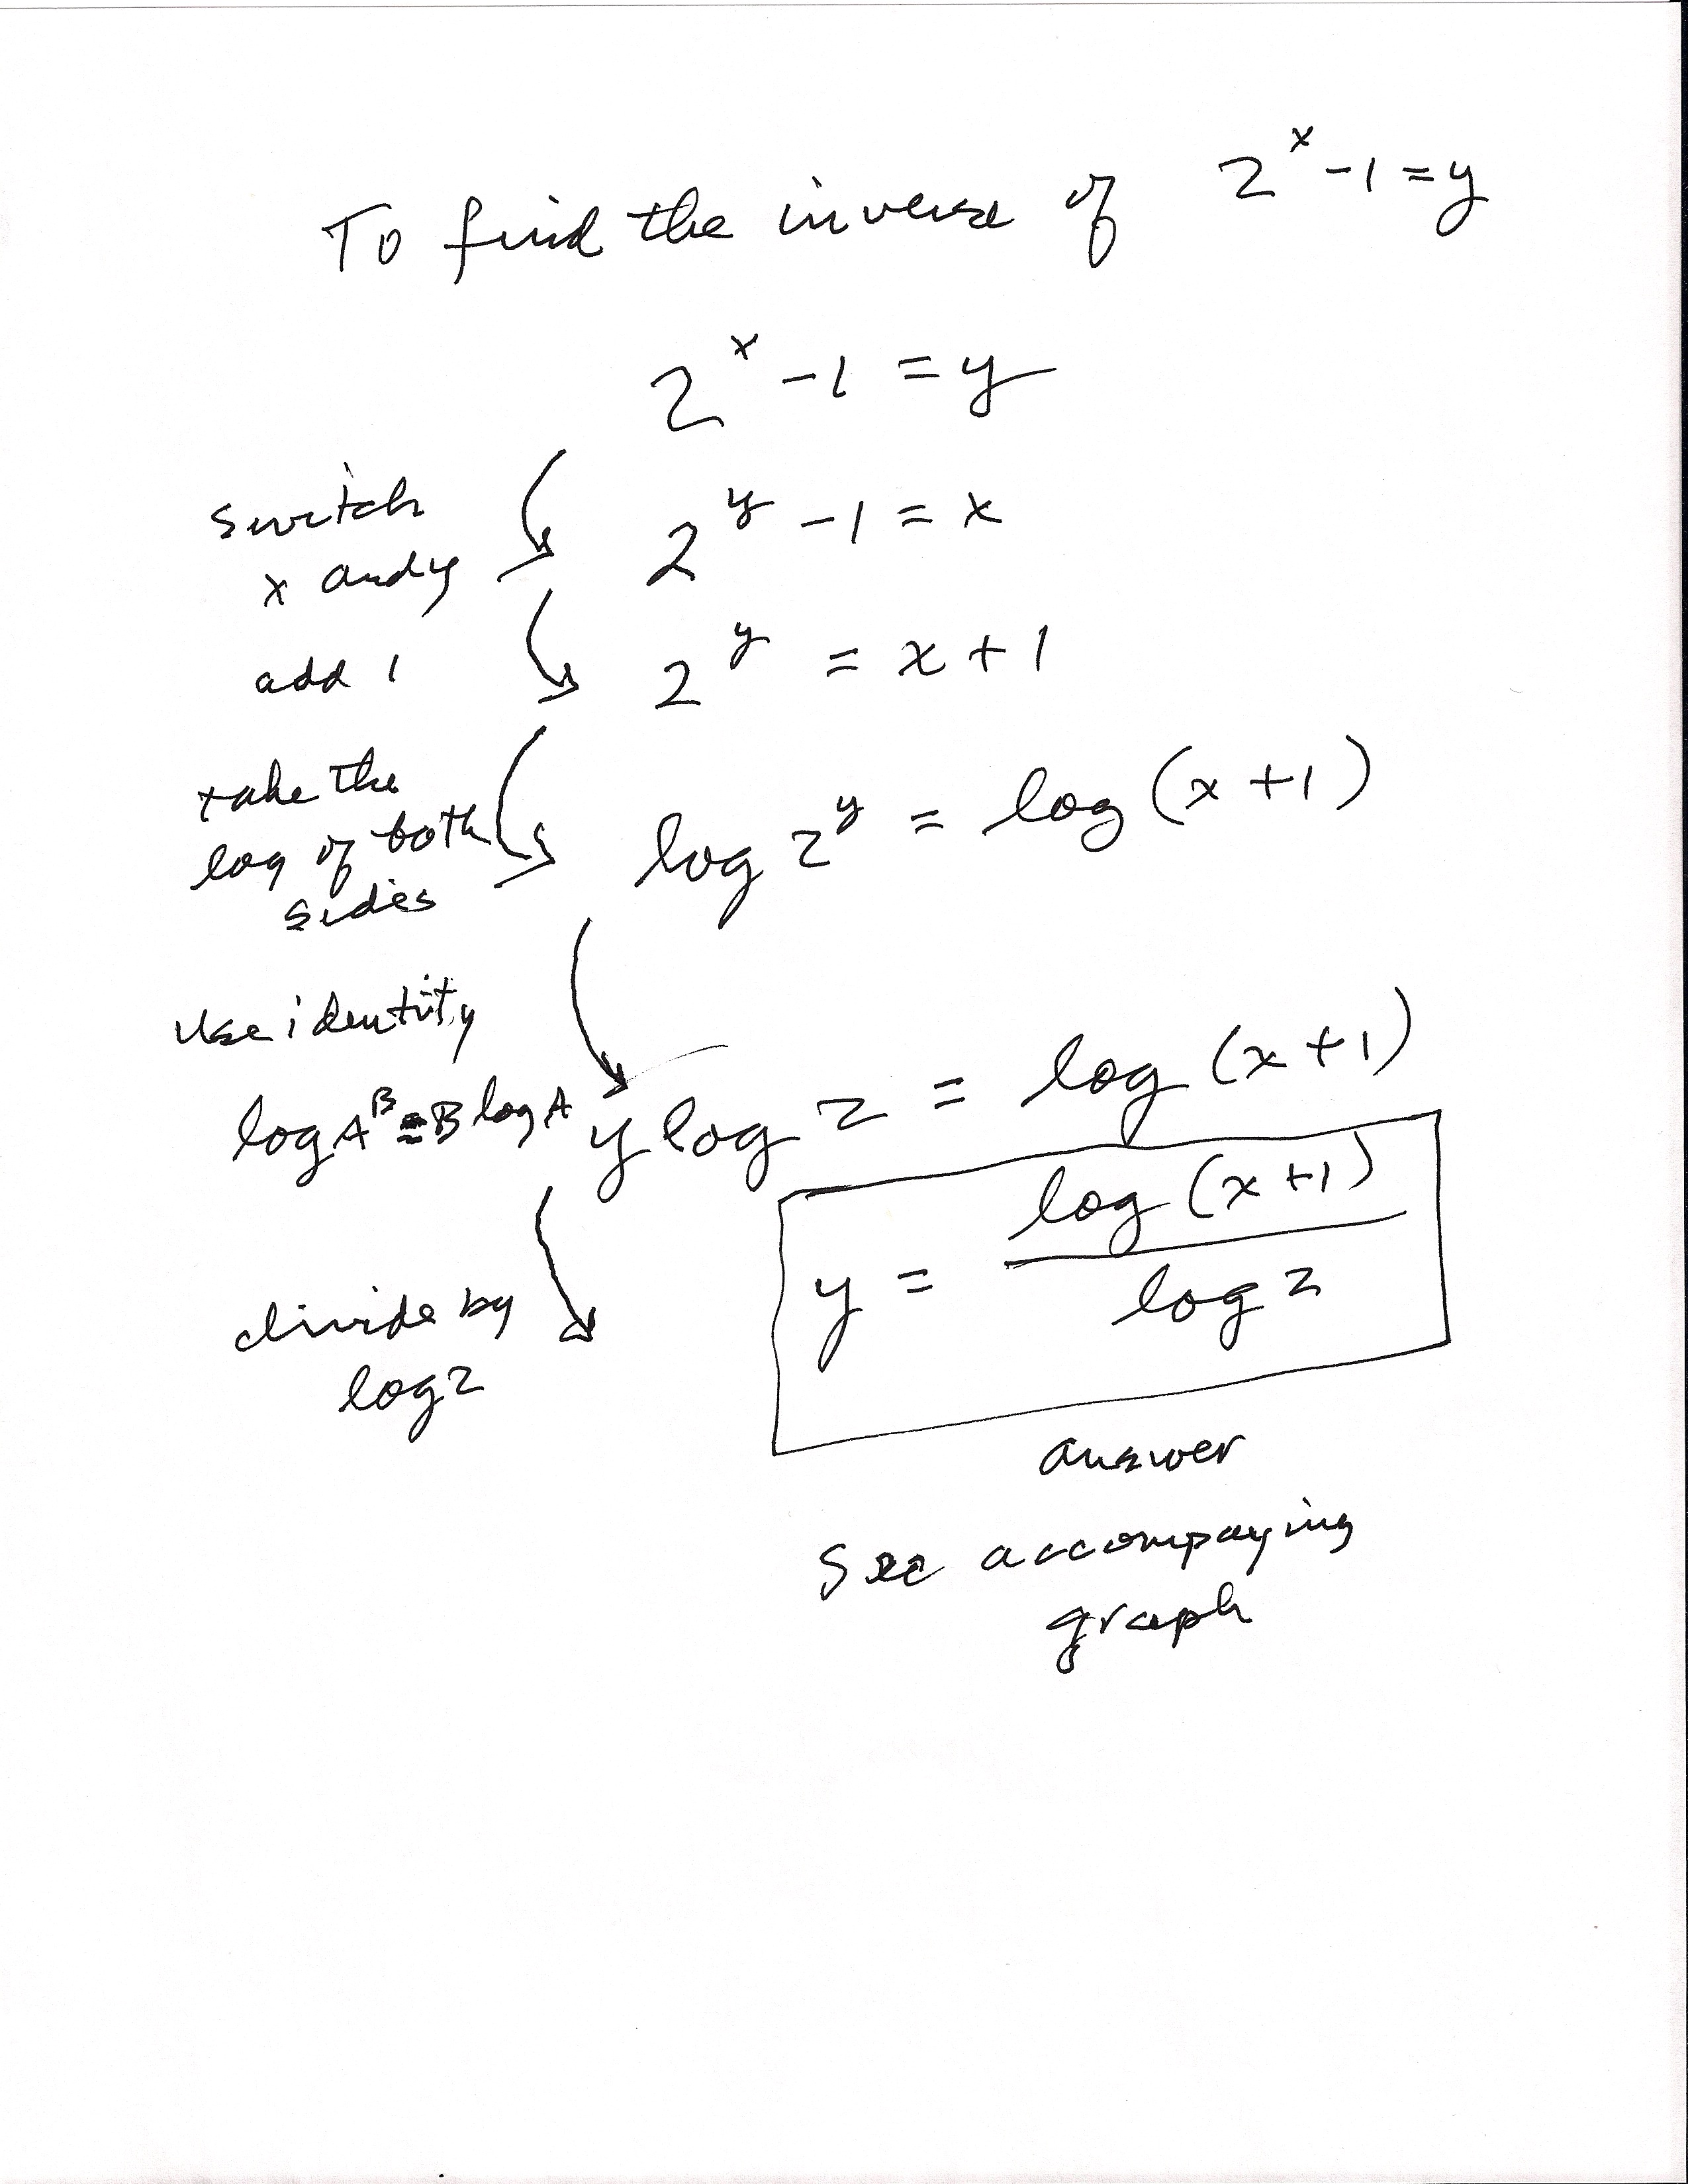 To find the inverse of 2^x - 1 = y
2^x - 1 = y
switch
x and y
2^y - 1 = x
add 1
2^y = x + 1
take the
log of both
sides
log 2^y = log (x + 1)
Use identity
log A^B = B log A
y log 2 = log (x + 1)
divide by
log 2
y = log (x + 1) / log 2
answer
See accompaying
graph